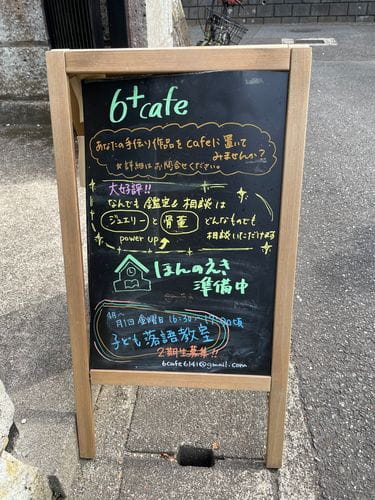 6+cafe
あなたの手作り作品をcafeに置いて
みませんか?
☆詳細はお問合せください。
大好評!!
なんでも鑑定&相談は
ジュエリーと骨董 どんなものでも
power up 相談いただけます
ほんのえき
準備中
4月〜
月1回金曜日 16:30〜
子ども落語教室
2期生募集!!
6cafe6141@gmail.com